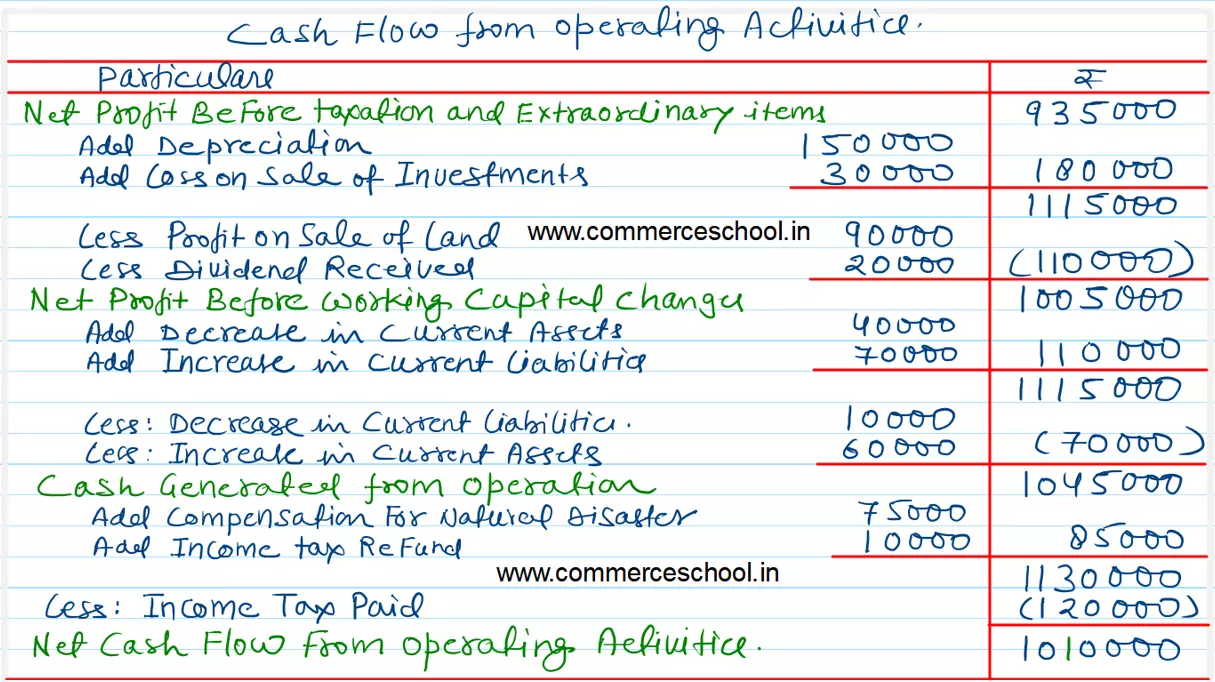 Cash Flow from Operating Activities.
Particulars ₹
Net Profit Before taxation and Extraordinary items 935000
Add Depreciation 150000
Add Loss on Sale of Investments 30000 180000
1115000
Less Profit on Sale of Land www.commerceschool.in 90000
Less Dividend Received 20000 (110000)
Net Profit Before Working Capital Changes 1005000
Add Decrease in Current Assets 40000
Add Increase in Current Liabilities 70000 110000
1115000
Less: Decrease in Current Liabilities. 10000
Less: Increase in Current Assets 60000 (70000)
Cash Generated from Operation 1045000
Add Compensation For Natural Disaster 75000
Add Income tax Refund 10000 85000
www.commerceschool.in 1130000
Less: Income Tax Paid (120000)
Net Cash Flow From Operating Activities. 1010000